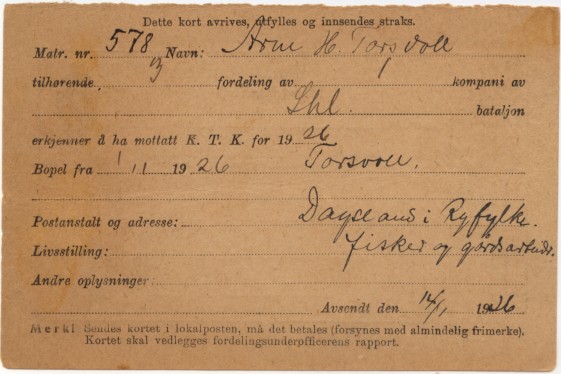 Dette kort avrives, utfylles og innsendes straks.
Matr. nr. 578 Navn: Arne H. Torsvoll
tilhørende 3 fordeling av 1 kompani av
Shl. bataljon
erkjenner å ha mottatt K. T. K. for 1926
Bopel fra 1/1 1926 Torsvoll.
Postanstalt og adresse: Døvland i Ryfylke.
Livsstilling: fisker og gårdsarbeider.
Andre oplysninger:
Avsendt den 14/1 1926
Merk! Sendes kortet i lokalposten, må det betales (forsynes med almindelig frimerke).
Kortet skal vedlegges fordelingsunderofficerens rapport.